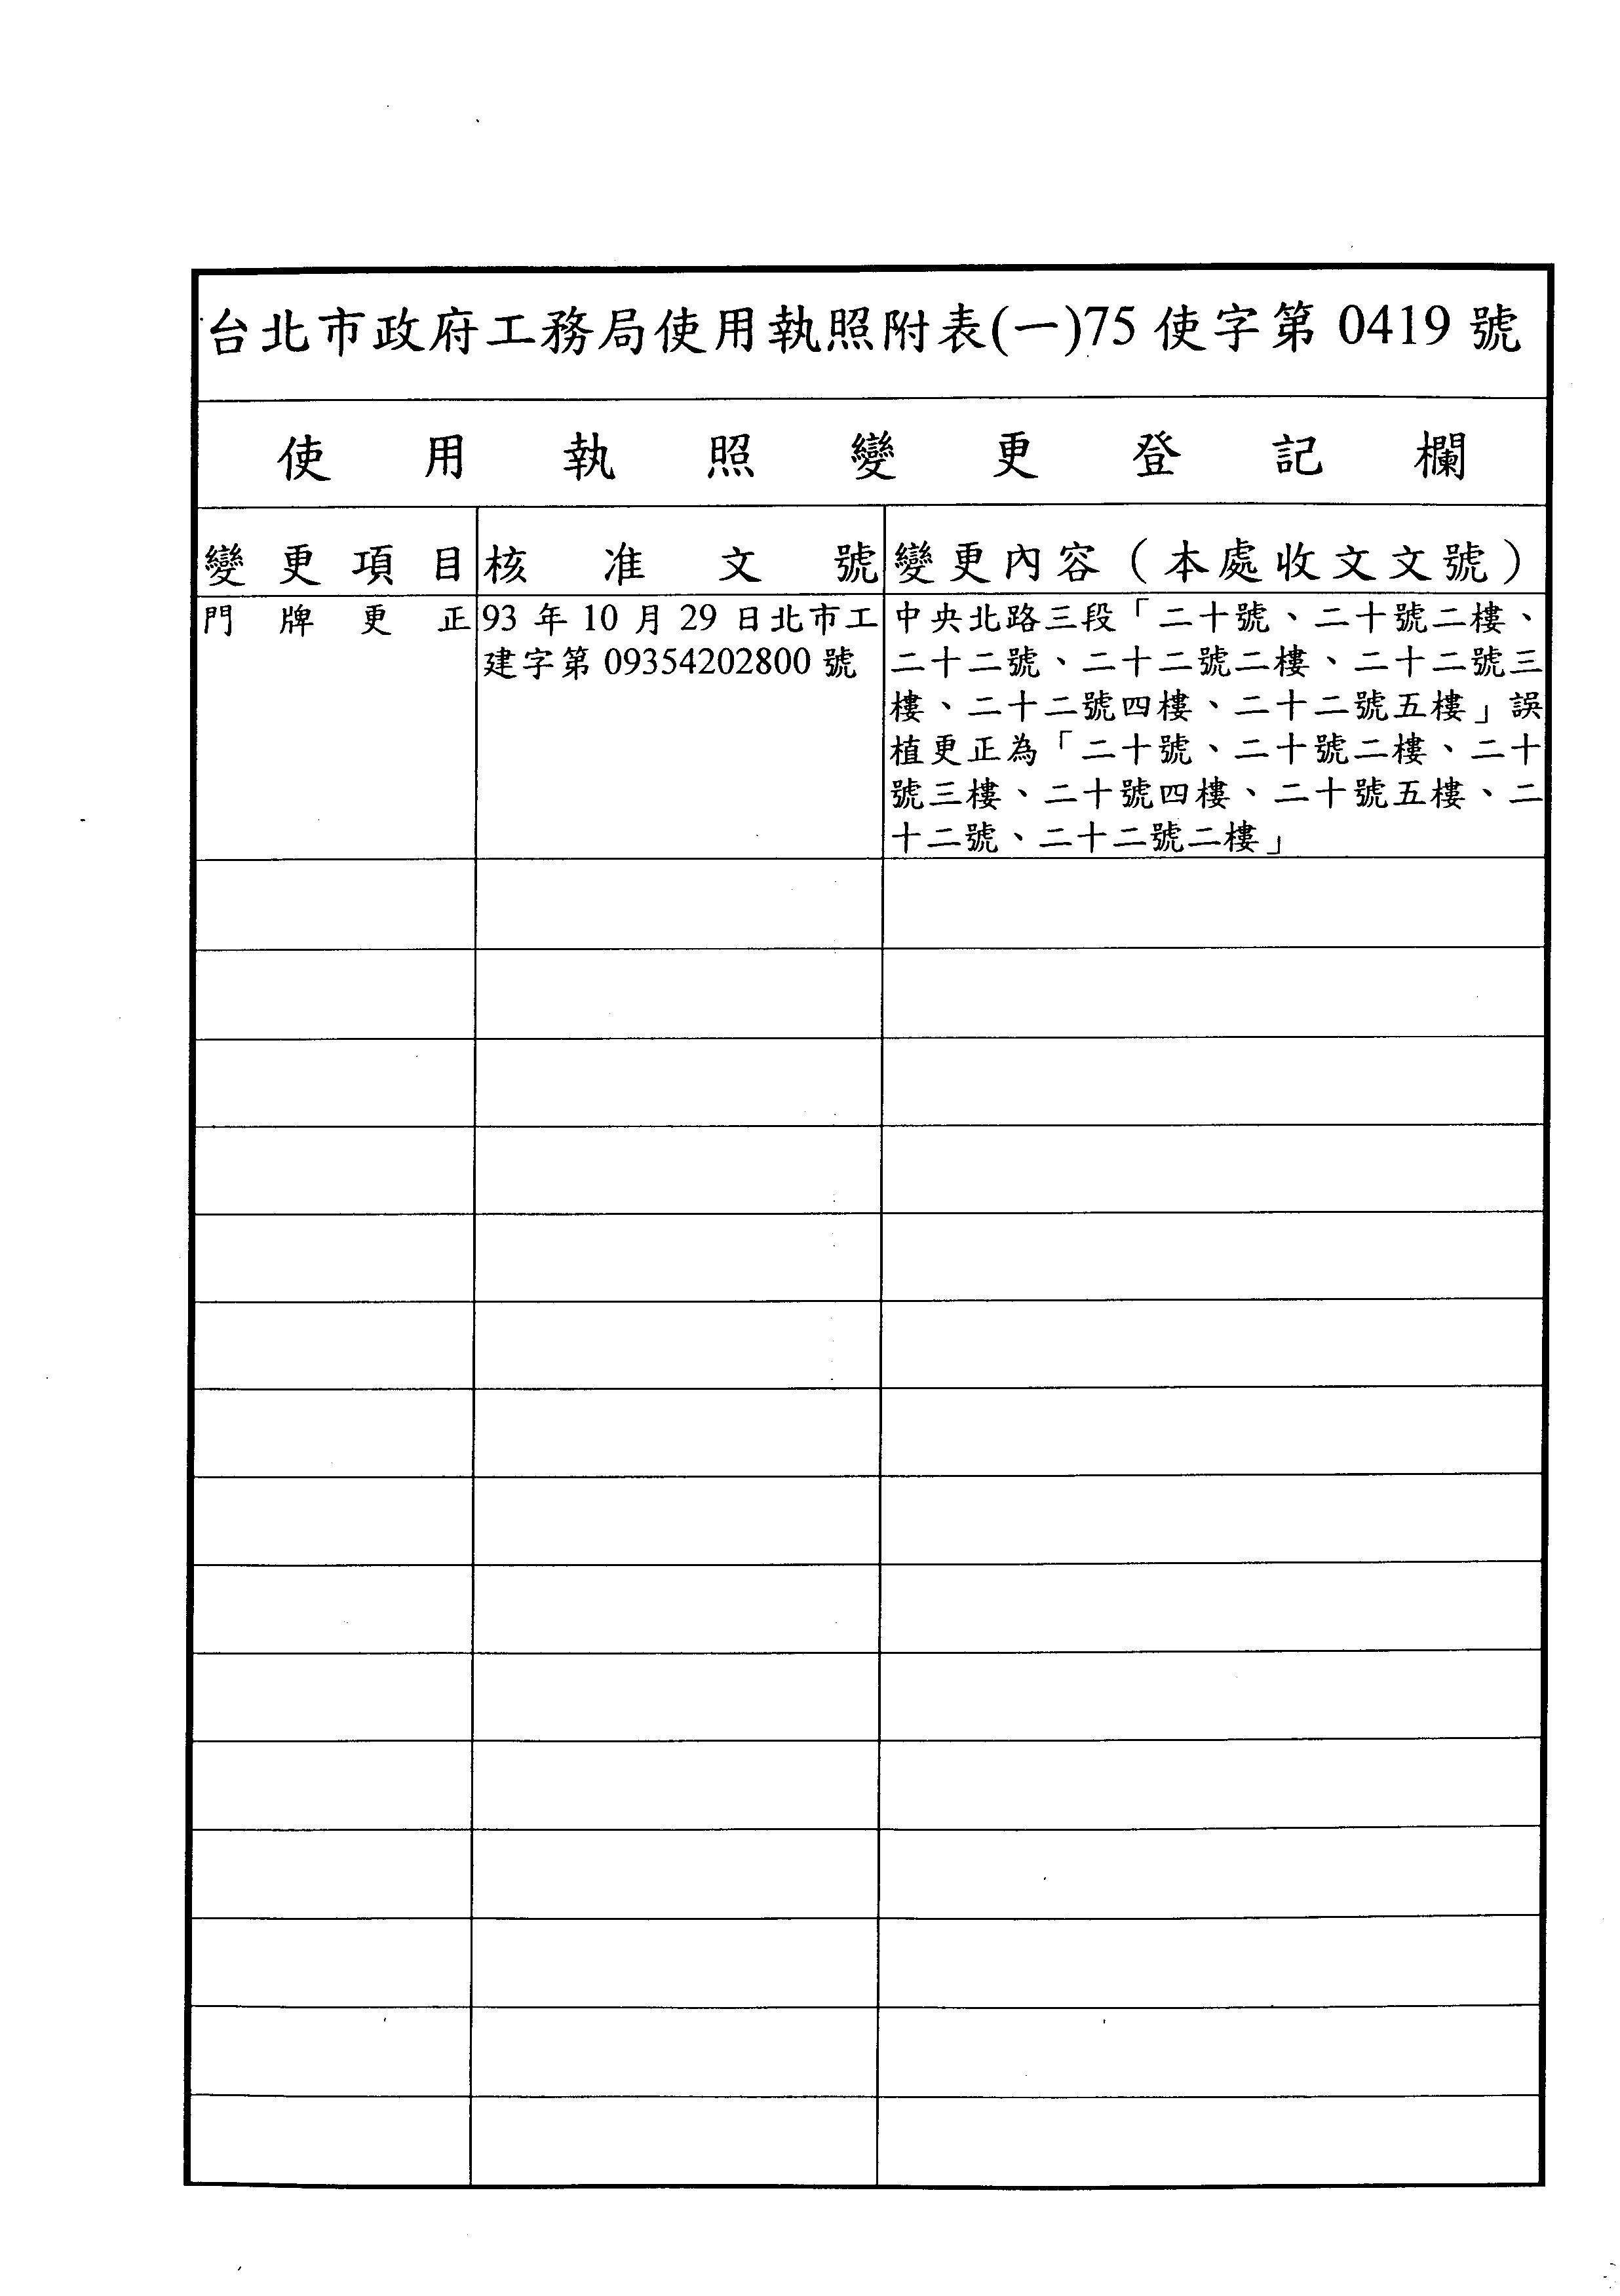 台北市政府工務局使用執照附表(一)75使字第0419號
使用執照變更登記欄
變更項目 核准文號 變更內容（本處收文文號）
門牌更正 93年10月29日北市工 中央北路三段「二十號、二十號二樓、
建字第09354202800號 二十二號、二十二號二樓、二十二號三
樓、二十二號四樓、二十二號五樓」誤
植更正為「二十號、二十號二樓、二十
號三樓、二十號四樓、二十號五樓、二
十二號、二十二號二樓」